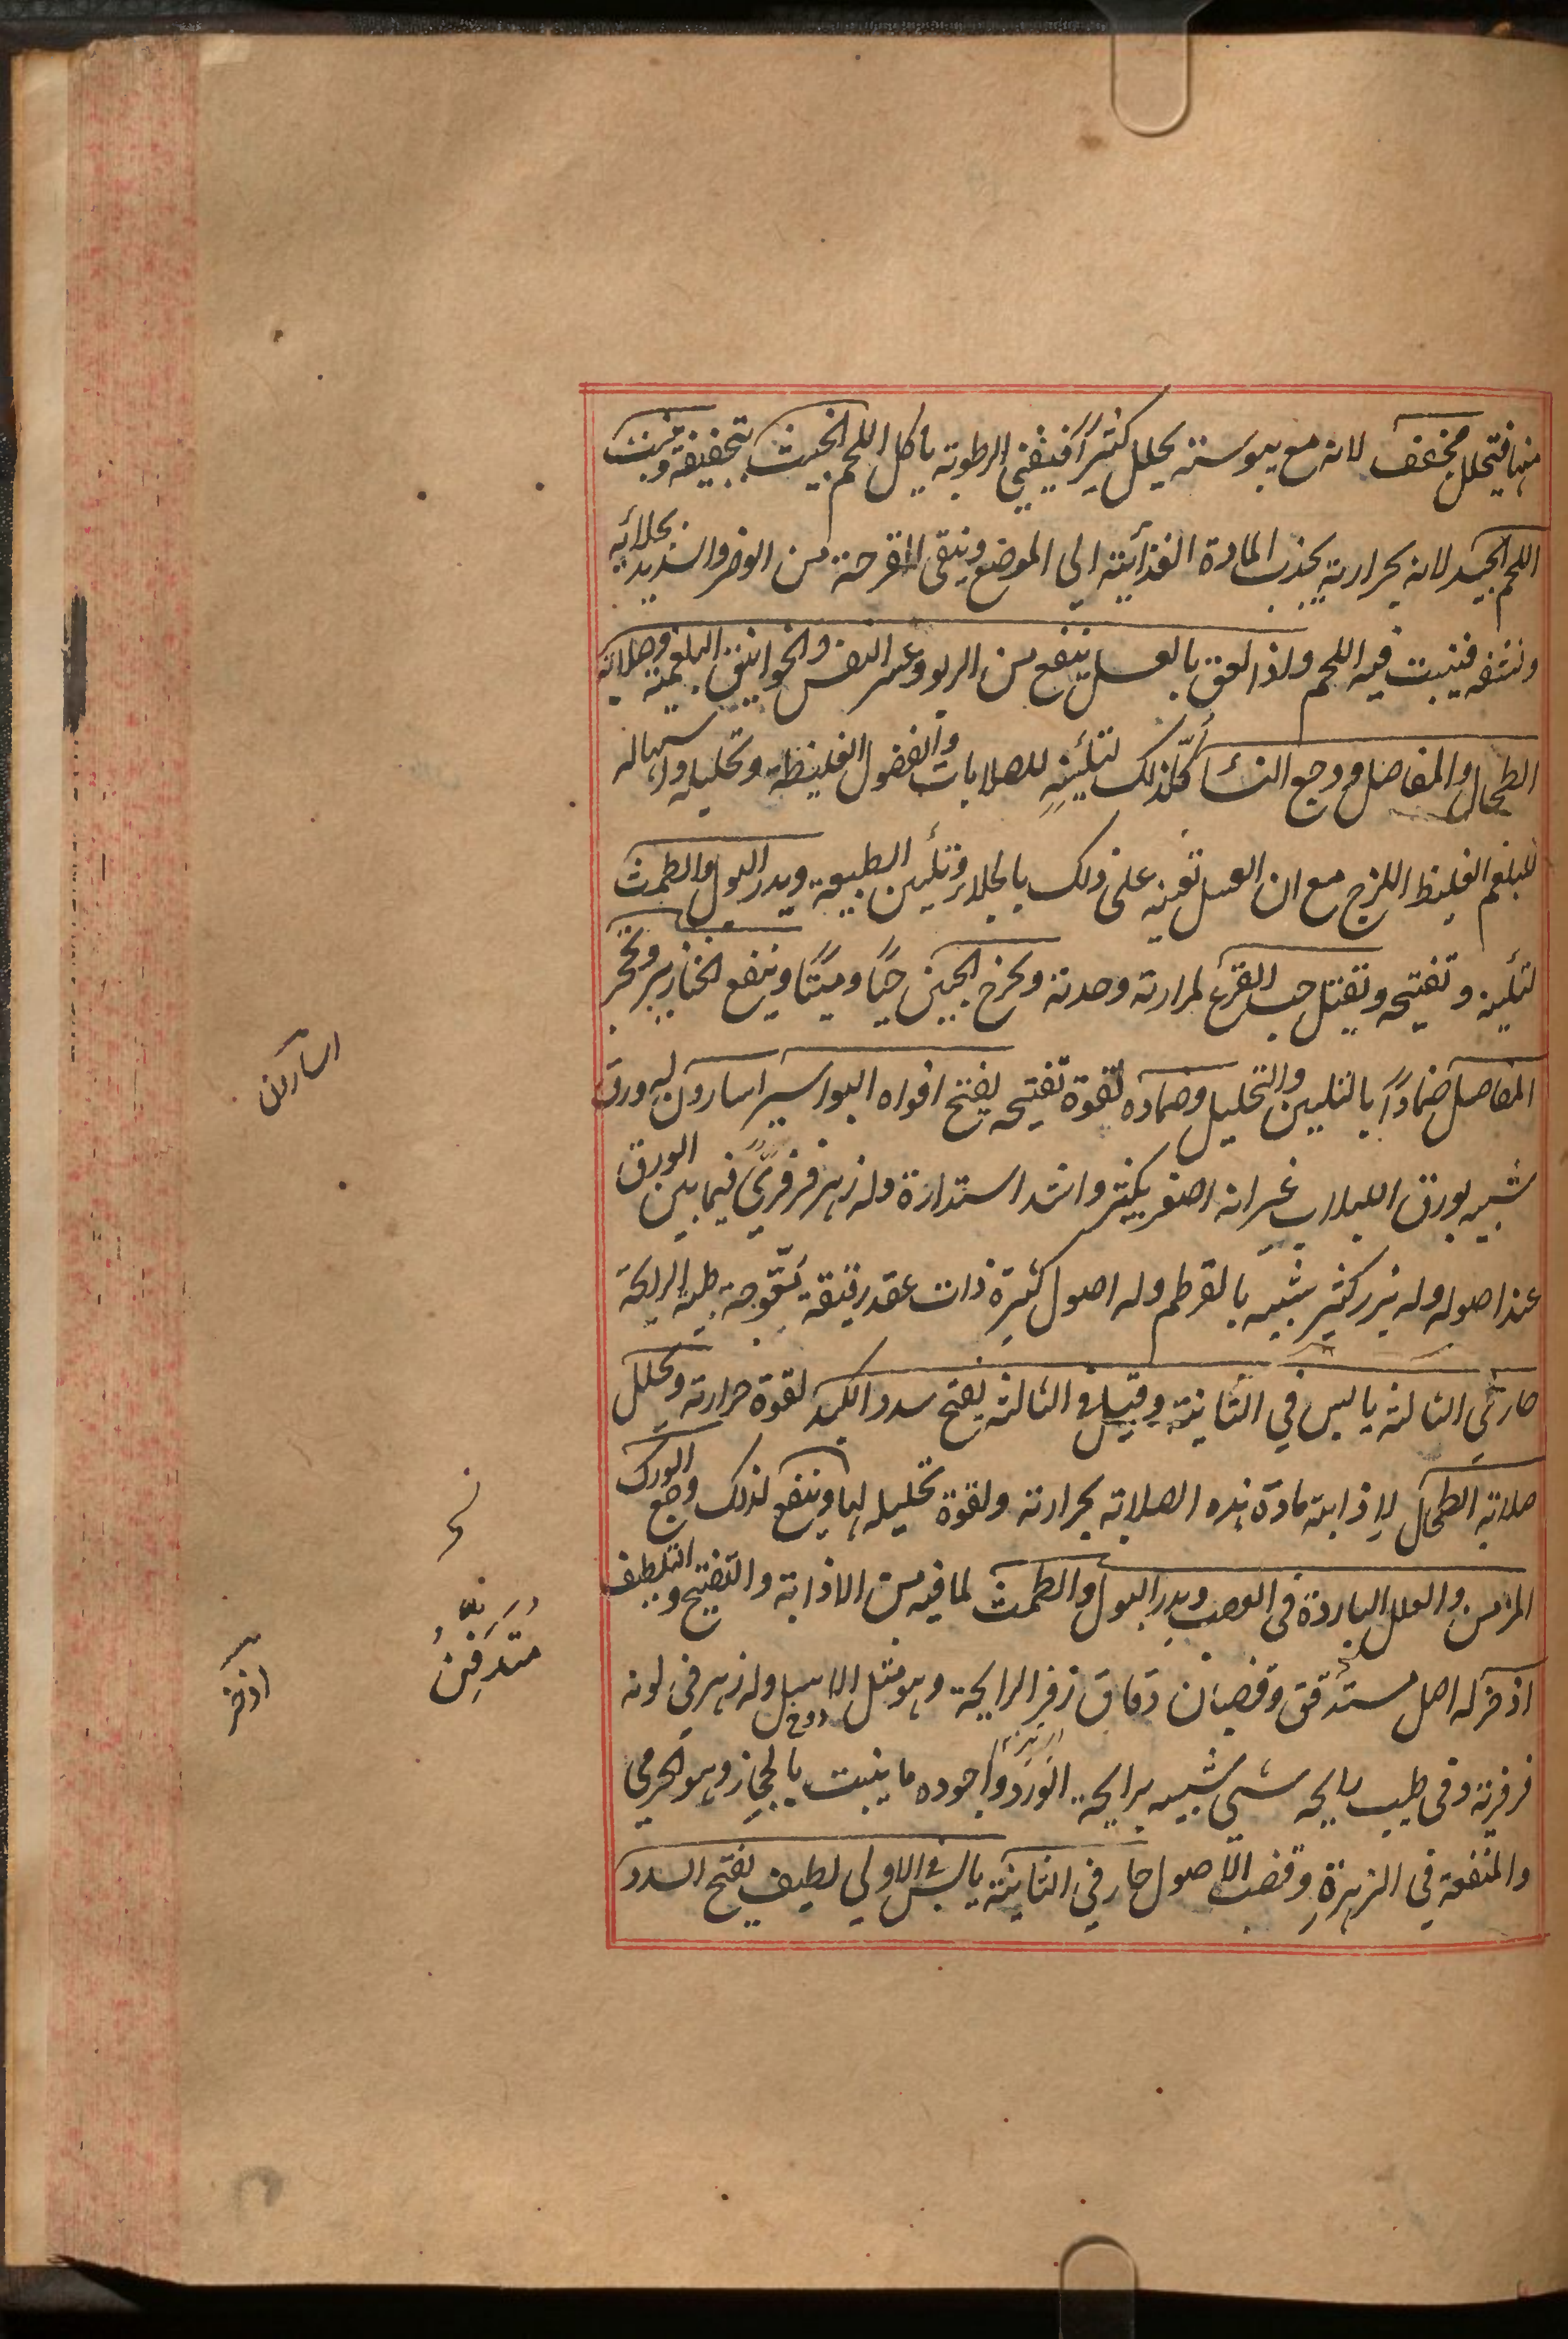 منها فيتحلل مجفف لانه مع يبوسته يحلل كثيرًا فيفني الرطوبة ياكل اللحم الخبيث بتجفيفه وينبت
اللحم الجيد لانه بحرارته يجذب المادة الغذائية الي الموضع وينقى القرحة من الوضر والصديد بجلائه
ونشفه فينبت فيه اللحم ولذا لعق بالعسل ينفع من الربو وعسر النفس والخوانيق البلغمية وصلابة
الطحال والمفاصل ووجع النسا كل ذلك لتليينه للصلابات والفضول الغليظة وتحليله واسهاله
للبلغم الغليظ اللزج مع ان العسل تعينه على ذلك بالجلاء وتليين الطبيعة ويدر البول والطمث
لتليينه وتفتيحه ويقتل حب القرع لمرارته وحدته ويخرج الجنين حيًا وميتًا وينفع الخنازير وتحجر
المفاصل ضمادًا بالتليين والتحليل وضماده لقوة تفتيحه يفتح افواه البواسير اسارون له ورق
شبيه بورق اللبلاب غير انه اصغر بكثير واشد استدارة وله زهر فرفري فيما بين الورق
عند اصوله وله بزر كثير شبيه بالقرطم وله اصول كثيرة ذات عقد رقيقة معوجة طيبة الرايحة
حار في الثالثة يابس في الثانية وقيل في الثالثة يفتح سدد الكبد لقوة حرارته ويحلل
صلابة الطحال لاذابته مادة هذه الصلابة بحرارته ولقوة تحليله لها وينفع لذلك وجع الورك
المزمن والعلل الباردة في العصب ويدر البول والطمث لما فيه من الاذابة والتفتيح والتلطيف
اذخر له اصل مستدقق وقضبان دقاق زفر الرايحة وهو مثل الاسل وله زهر في لونه
فرفرية وفي طيب رايحه شي شبيه برايحة الورد واجوده ما ينبت بالحجاز وهو الحرمي
والمنفعة في الزهرة وقضب الاصول حار في الثانية يابس في الاولي لطيف يفتح السدد
اسارون
اذخر